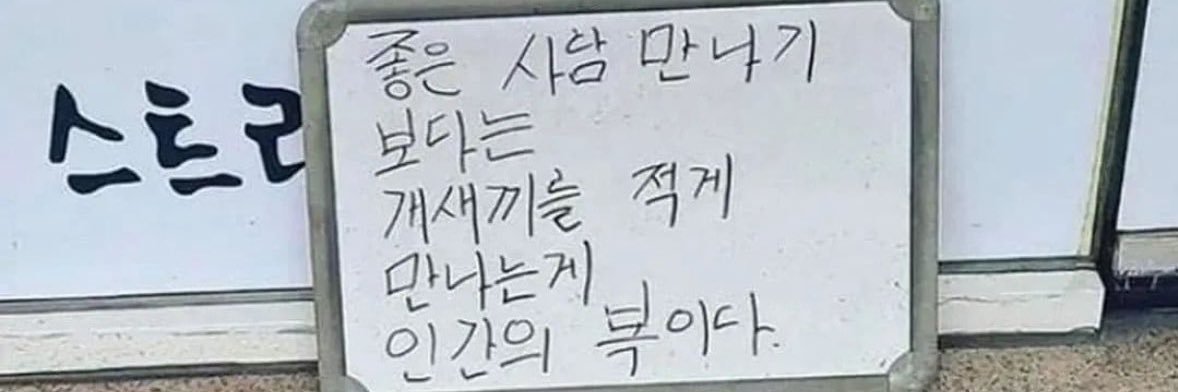 스트리
좋은 사람 만나기
보다는
개새끼를 적게
만나는게
인간의 복이다.